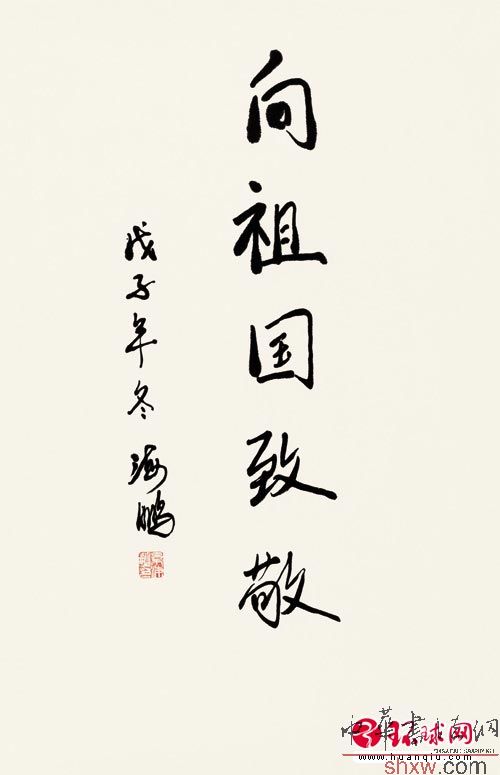 向祖国致敬
戊子年冬 海鹏
环球网
www.huanqiu.com
shxw.com